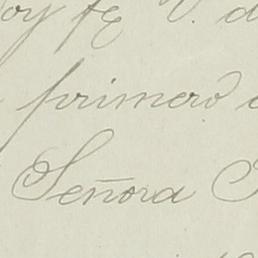 oy fe V. d
primero
Señora